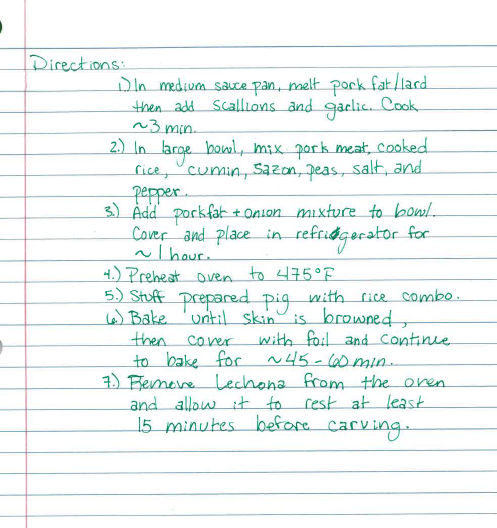 Directions:
1.) In medium sauce pan, melt pork fat/lard
then add scallions and garlic. Cook
~3 min.
2.) In large bowl, mix pork meat, cooked
rice, cumin, sazon, peas, salt, and
pepper.
3.) Add porkfat + onion mixture to bowl.
Cover and place in refridgerator for
~ 1 hour.
4.) Preheat oven to 475°F
5.) Stuff prepared pig with rice combo.
6.) Bake until skin is browned,
then cover with foil and continue
to bake for ~45-60 min.
7.) Remove Lechona from the oven
and allow it to rest at least
15 minutes before carving.